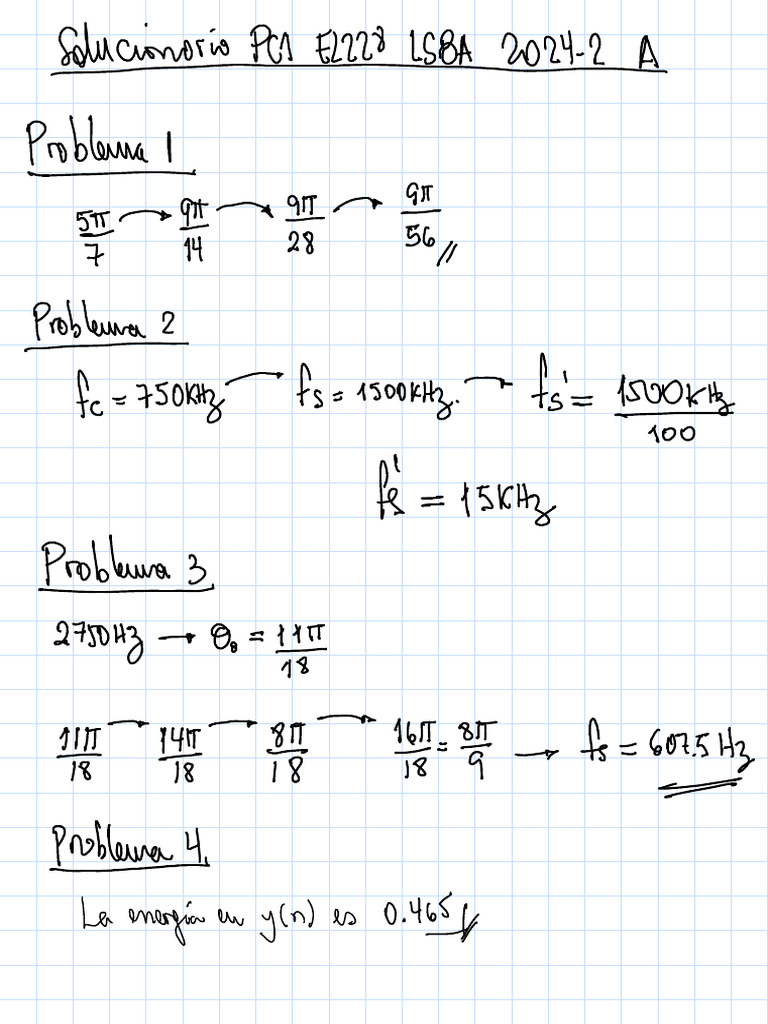 Solucionario PC1 EL228 LSBA 2024-2 A
Problema 1
5π/7 → 9π/14 → 9π/28 → 9π/56 //
Problema 2
fc = 750KHz → fs = 1500KHz. → fs' = 1500KHz/100
fs' = 15KHz
Problema 3
2750Hz → θ₀ = 11π/18
11π/18 → 14π/18 → 8π/18 → 16π/18 = 8π/9 → fs = 607.5 Hz
Problema 4.
La energía en y(n) es 0.465 //